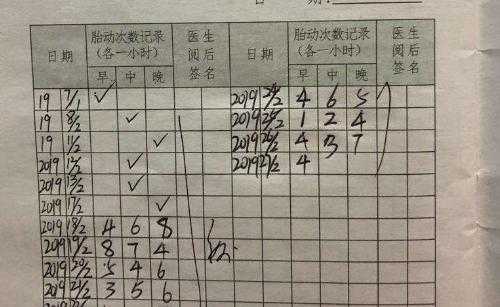 日期 胎动次数记录(各一小时) 医生阅后签名 日期 胎动次数记录(各一小时) 医生阅后签名
早 中 晚 早 中 晚
19 7/1 ✓ 2019 24/2 4 6 5
19 8/2 ✓ 2019 25/2 1 2 4
19 11/2 ✓ 2019 26/2 4 3 7
2019 12/2 ✓ 2019 27/2 4
2019 13/2 ✓
2019 17/2 ✓
2019 18/2 4 6 8
2019 19/2 8 7 4
2019 20/2 5 4 6
2019 21/2 3 5 6